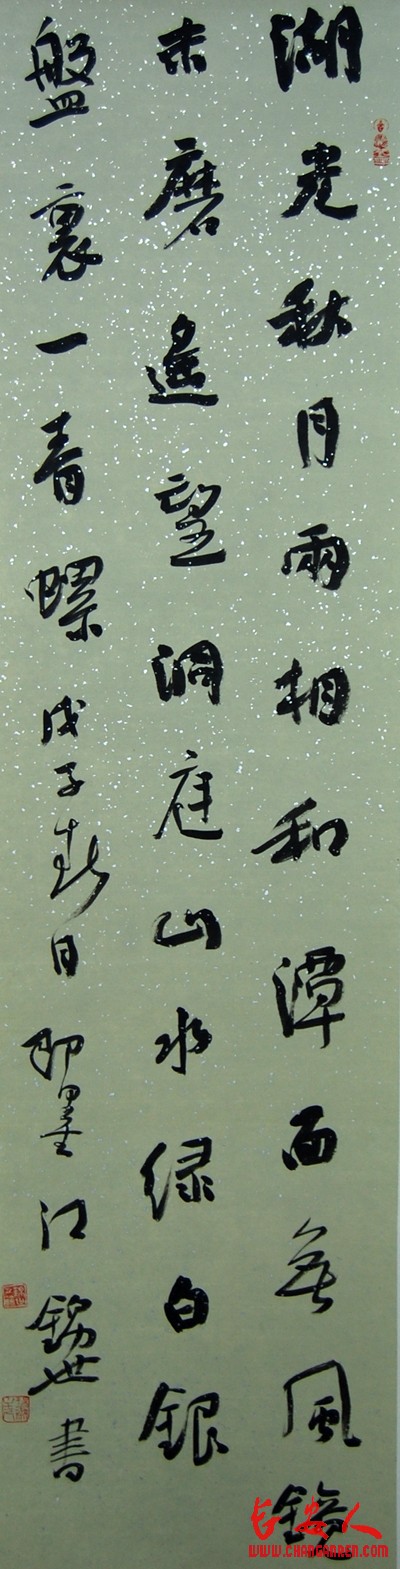 湖光秋月两相和潭面无风镜
未磨遥望洞庭山水绿白银
盘裏一青螺戊子春日即墨江锡世书
长安人
WWW.CHANGANREN.COM